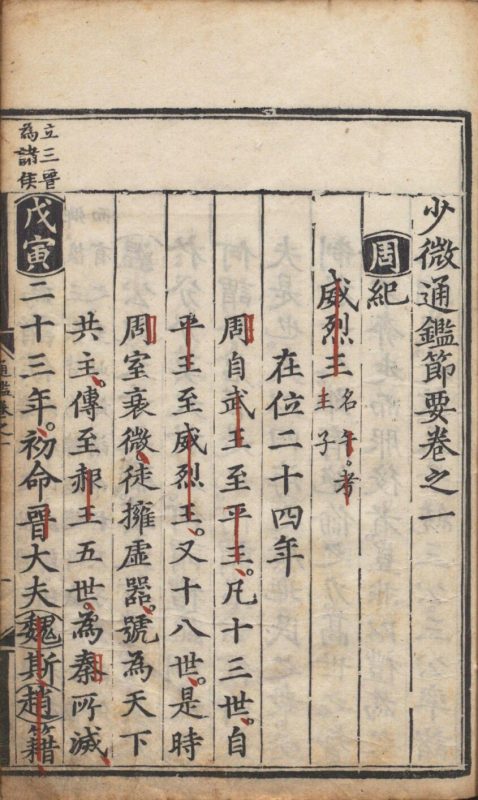 少微通鑑節要卷之一
周紀
威烈王名午考王子
在位二十四年
周自武王至平王凡十三世自
平王至威烈王又十八世是時
周室衰微徒擁虛器號為天下
共主傳至赧王五世為秦所滅
立三晉
為諸侯
戊寅二十三年初命晉大夫魏斯趙籍